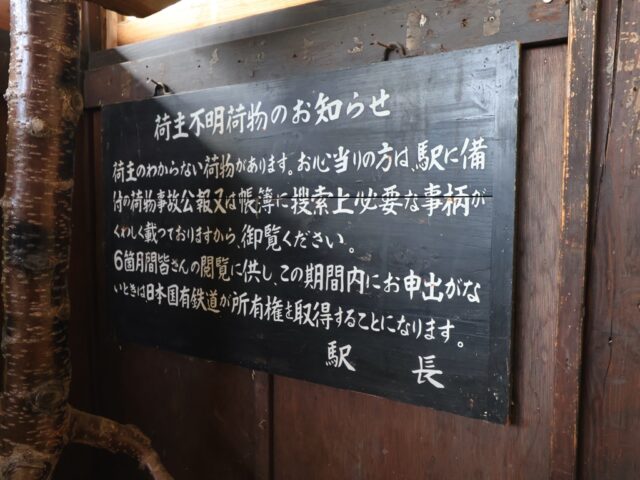 荷主不明荷物のお知らせ
荷主のわからない荷物があります。お心当りの方は、駅に備
付の荷物事故公報又は帳簿に捜索上必要な事柄が
くわしく載つておりますから、御覧ください。
6箇月間皆さんの閲覧に供し、この期間内にお申出がな
いときは日本国有鉄道が所有権を取得することになります。
駅長